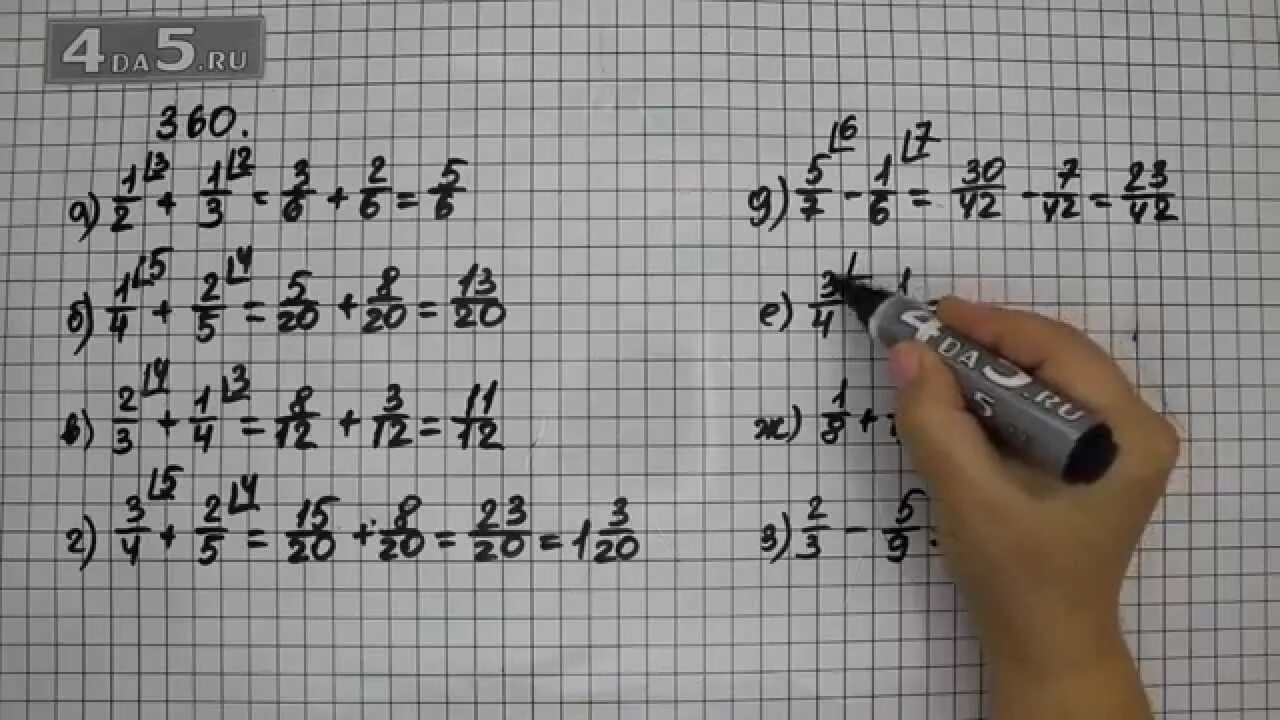 4DA5.RU
360.
а) 1/2 ⌊3 + 1/3 ⌊2 = 3/6 + 2/6 = 5/6
б) 1/4 ⌊5 + 2/5 ⌊4 = 5/20 + 8/20 = 13/20
в) 2/3 ⌊4 + 1/4 ⌊3 = 8/12 + 3/12 = 11/12
г) 3/4 ⌊5 + 2/5 ⌊4 = 15/20 + 8/20 = 23/20 = 1 3/20
д) 5/7 ⌊6 - 1/6 ⌊7 = 30/42 - 7/42 = 23/42
е) 3/4
ж) 1/8 +
з) 2/3 - 5/9
4DA5.RU